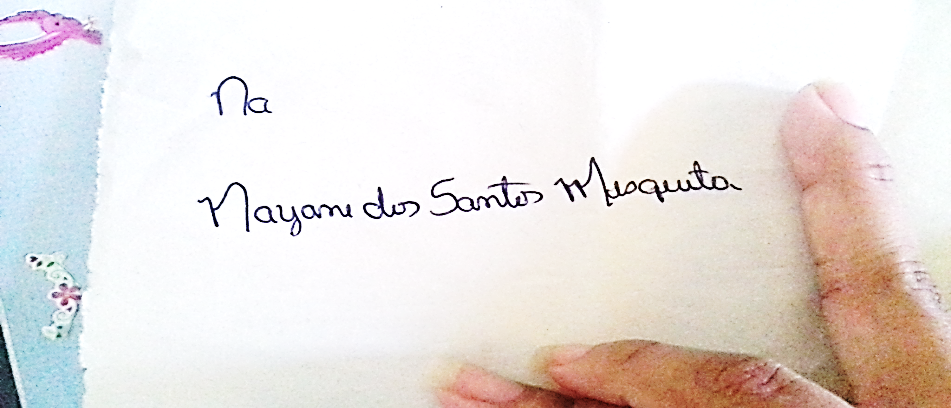 Na
Nayane dos Santos Mesquita